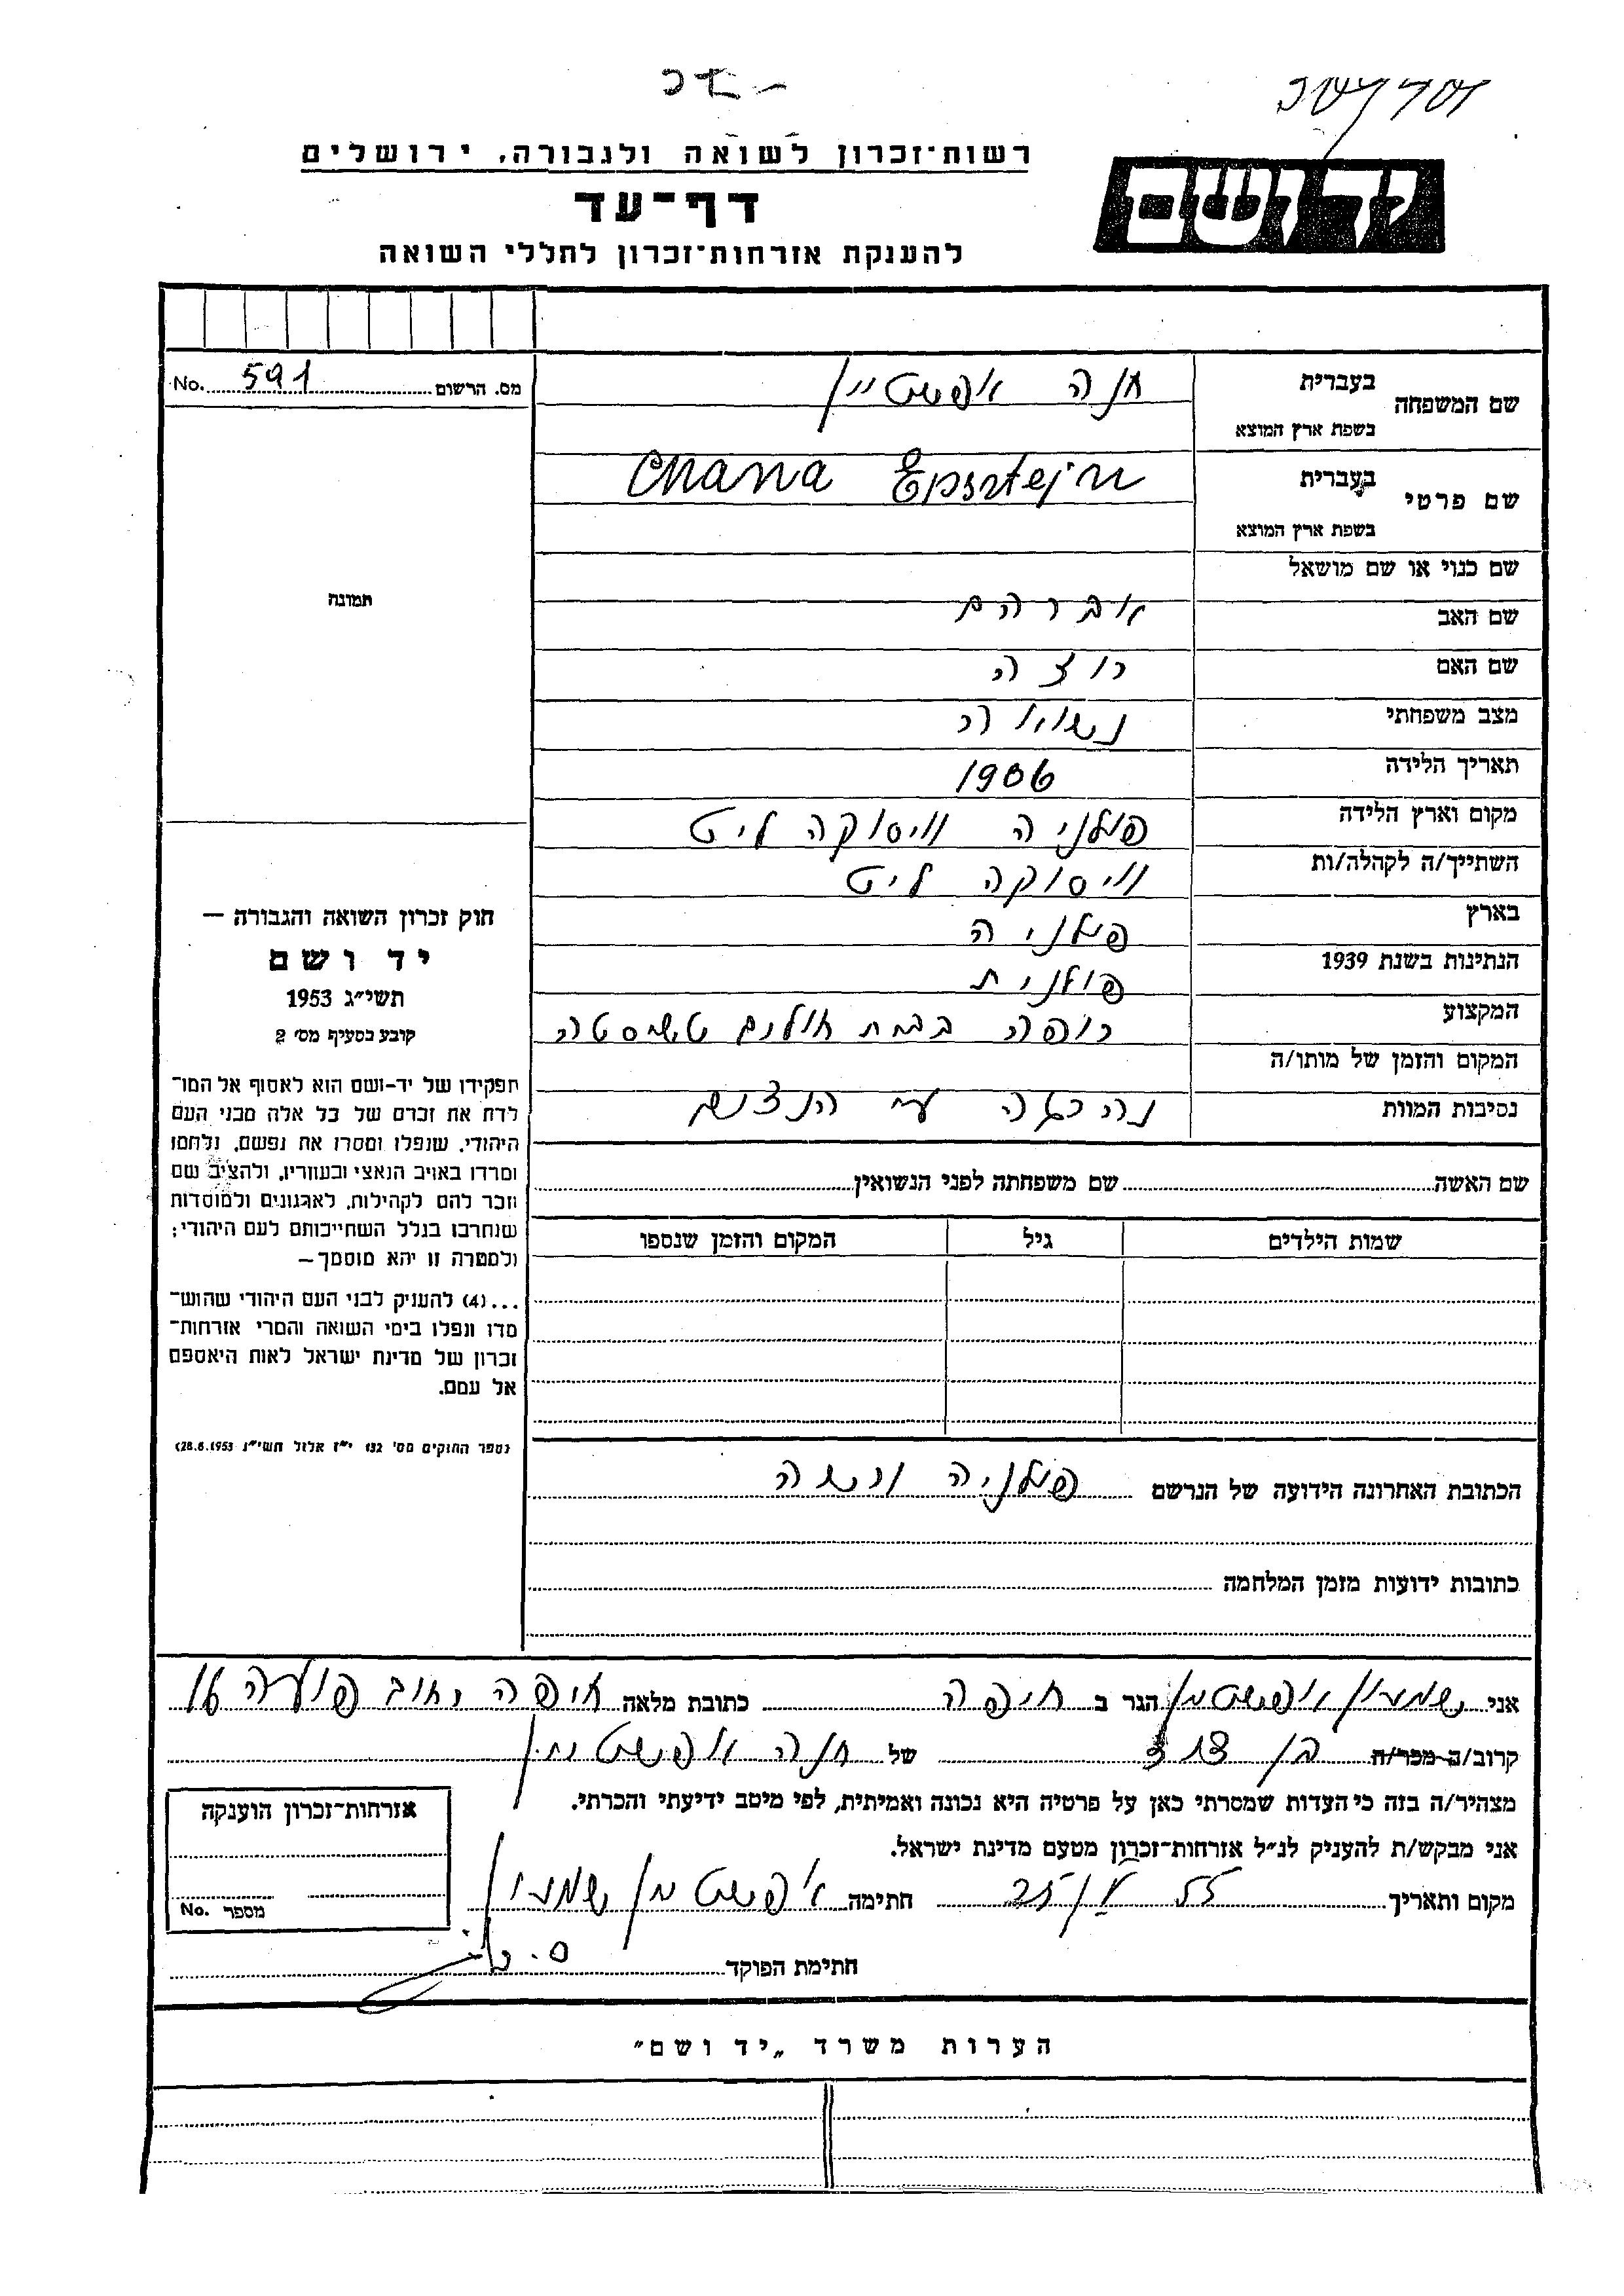 רשות־זכרון לשואה ולגבורה, ירושלים
יד ושם
דף־עד
להענקת אזרחות־זכרון לחללי השואה
מס. הרשום 591 No.
שם המשפחה בעברית חנה אפשטיין
בשפת ארץ המוצא
שם פרטי בעברית Chana Epsztejn
בשפת ארץ המוצא
שם כנוי או שם מושאל
שם האב אברהם
שם האם רוצה
מצב משפחתי נשואה
תאריך הלידה 1906
מקום וארץ הלידה פולניה וויסוקה ליט
השתייך/ה לקהלה/ות וויסוקה ליט
בארץ פולניה
הנתינות בשנת 1939 פולנית
המקצוע רופה בבית חולים
המקום והזמן של מותו/ה
נסיבות המוות נהרגה
תמונה
חוק זכרון השואה והגבורה —
יד ושם
תשי״ג 1953
קובע בסעיף מס׳ 2
תפקידו של יד-ושם הוא לאסוף אל המו־
לדת את זכרם של כל אלה מבני העם
היהודי, שנפלו ומסרו את נפשם, נלחמו
ומרדו באויב הנאצי ובעוזריו, ולהציב שם
וזכר להם לקהילות, לארגונים ולמוסדות
שנחרבו בגלל השתייכותם לעם היהודי;
ולמטרה זו יהא מוסמך—
...(4) להעניק לבני העם היהודי שהוש־
מדו ונפלו בימי השואה והמרי אזרחות־
זכרון של מדינת ישראל לאות היאספם
אל עמם.
(ספר החוקים מס׳ 132 י״ז אלול תשי״ג 28.8.1953)
שם האשה שם משפחתה לפני הנשואין
שמות הילדים גיל המקום והזמן שנספו
הכתובת האחרונה הידועה של הנרשם פולניה ורשה
כתובות ידועות מזמן המלחמה
אני שמעון אפשטיין הגר ב חיפה כתובת מלאה חיפה רחוב
קרוב/ה מכר/ה בן דוד של חנה אפשטיין
מצהיר/ה בזה כי העדות שמסרתי כאן על פרטיה היא נכונה ואמיתית, לפי מיטב ידיעתי והכרתי.
אני מבקש/ת להעניק לנ״ל אזרחות־זכרון מטעם מדינת ישראל.
מקום ותאריך חתימה אפשטיין שמעון
חתימת הפוקד
אזרחות־זכרון הוענקה
מספר No.
הערות משרד „יד ושם״